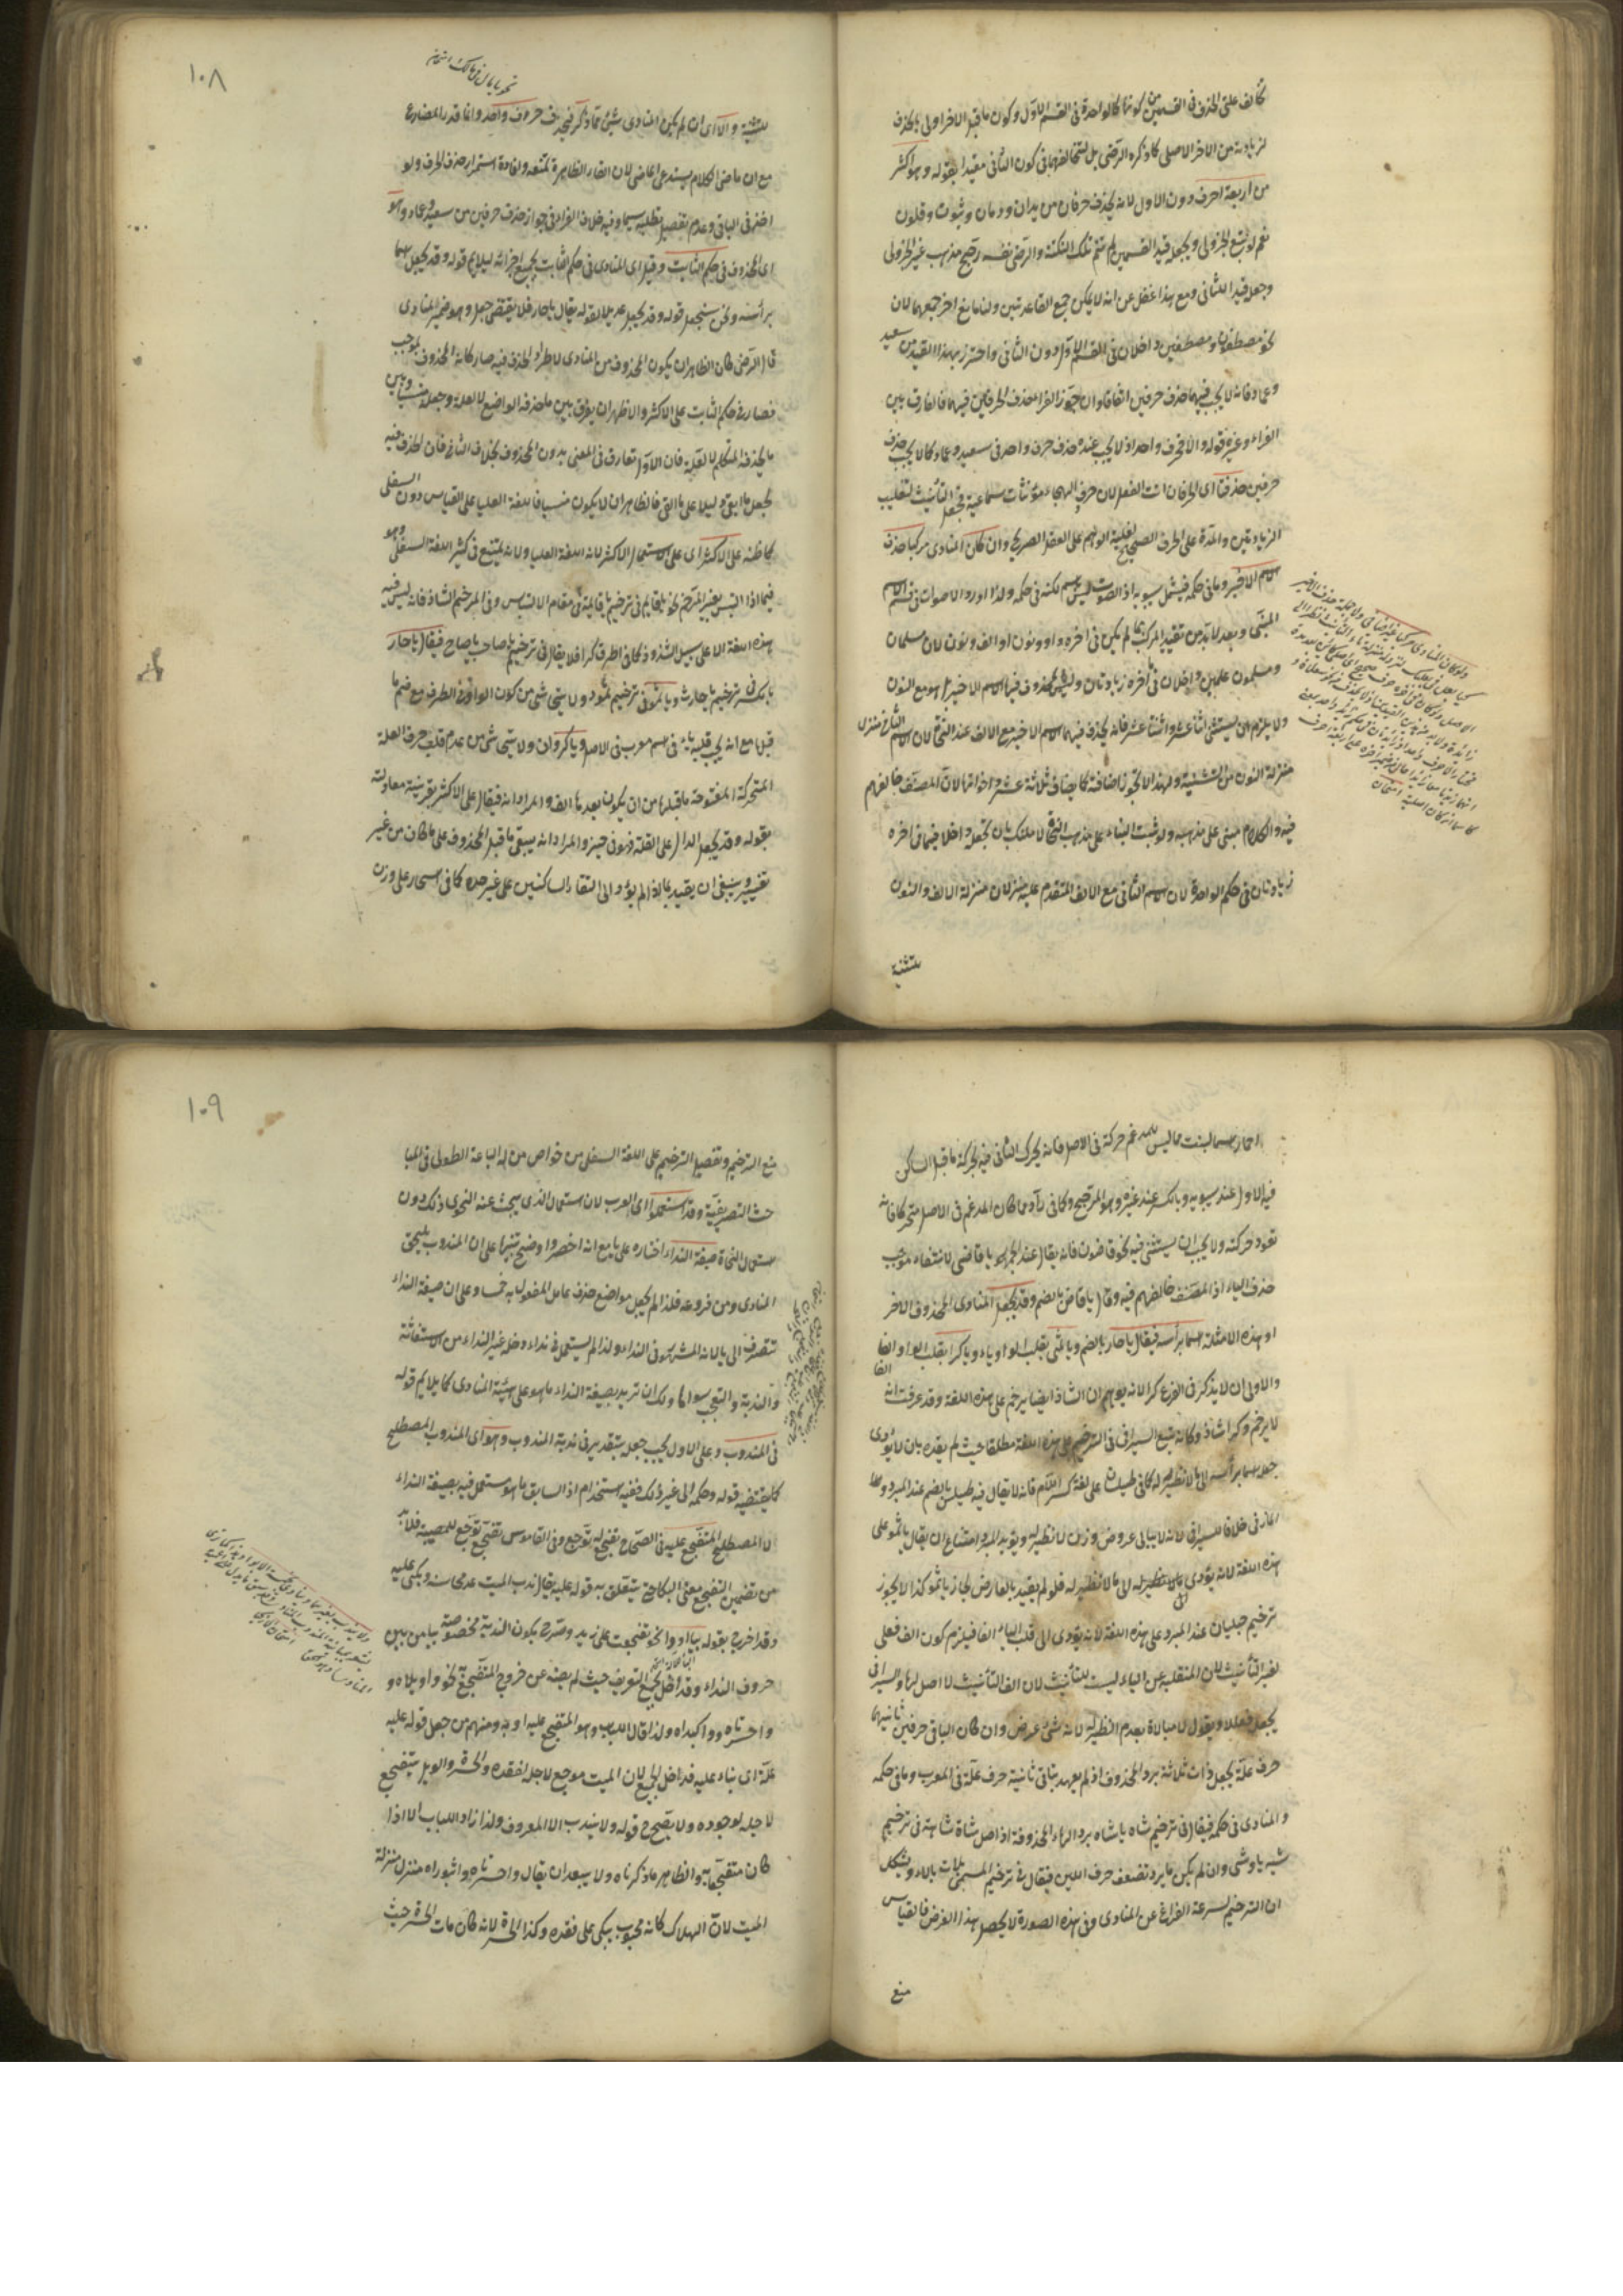 تخالف علتى الحذف فى القسمين من كونها كالواحدة فى القسم الاول وكون ما قبل الاخر اولى بالحذف
لزيادته من الاخر الاصلى كما ذكره الرضى بل لتخالفهما فى كون الثانى مقيدا بقوله وهو اكثر
من اربعة احرف دون الاول لانه يحذف حرفان من يدان ودمان وثبون وقلون
نعم لو تبع الجزولى ويجعله قيد القسمين لم تتم تلك النكتة والرضى نفسه رجح مذهب غير الجزولى
وجعله قيدا للثانى ومع هذا غفل عن انه لا يمكن جمع القاعدتين ولنا مانع اخر جمعهما لان
نحو مصطفون ومصطفين داخلان فى القسم الاول دون الثانى واحترز بهذا القيد من سعيد
وعماد فانه لا يجب فيهما حذف حرفين اتفاقا وان جوز الفراء حذف الحرفين فيهما فالفارق بين
الفراء وغيره قوله والا فحرف واحد اذ لا يجب عنده حذف حرف واحد فى سعيد وعماد كما لا يجب حذف
حرفين حذفتا اى الحرفان انث الفعل لان حروف الهجاء مؤنثات سماعية فجعل التأنيث لتغليب
الزيادتين والمدة على الحرف الصحيح لغلبة الوهم على العقل الصريح وان كان المنادى مركبا حذف
الاسم الاخير وما فى حكمه فيشمل سيبويه اذ الصوت ليس باسم لكنه فى حكمه ولذا اورد الاصوات فى قسم الاسم
المبنى وبعد لا بد من تقييد المركب بما لم يكن فى اخره واو ونون او الف ونون لان مسلمان
ومسلمون علمين داخلان فى اخره زيادتان وليس المحذوف فيهما الاسم الاخير بل هو مع النون
ولا يلزم ان يستثنى اثنا عشر واثنتا عشر فانه يحذف فيهما الاسم الاخير مع الالف عند النحاة لان الاسم الثانى منزل
منزلة النون من التثنية ولهذا لا يجوز اضافته كما يضاف ثلاثة عشر واخواتها لان المصنف خالفهم
فيه والكلام مبنى على مذهبه ولو شئت البناء على مذهب النحاة لا ملك بان تجعله داخلا فيما فى اخره
زيادتان فى حكم الواحدة لان الاسم الثانى مع الالف المتقدم عليه منزلان منزلة الالف والنون
للتثنية
١٠٨
للتثنية والا اى ان لم يكن المنادى شيئ مما ذكر فيحذف حرف واحد وانما قدر المضارع
مع ان ماضى الكلام يستدعى الماضى لان الفاء الظاهرة تمنعه ولافادة استمرار حذف الحرف ولو
اخذ فى الباقى وعدم تفصيل يطلبه سيما وفيه خلاف الفراء فى جواز حذف حرفين من سعيد وعماد وهو
اى المحذوف فى حكم الثابت وقيل اى المنادى فى حكم الثابت بجميع اجزائه ليلايم قوله وقد يجعل اسما
برأسه ونحن سنجعل قوله وقد يجعل عديلا لقوله يقال يا حار فلا يقتضى جعل وهو ضمير المنادى
قال الرضى كان الظاهر ان يكون المحذوف من المنادى لاطراد الحذف فيه صار كانه المحذوف لموجب
فصار فى حكم الثابت على الاكثر والاظهر ان يفرق بين ما حذفه الواضع لا لعلة وجعله منسيا وبين
ما يحذفه المتكلم لا لعلة فان الاول تعارف فى المعنى بدون المحذوف بخلاف الثانى فان الحذف فيه
يجعل ما ابقى دليلا على ما القى فالظاهر ان لا يكون منسيا فاللغة العليا على القياس دون السفلى
كما ظنه على الاكثر اى على الاستعمال الاكثر لانه اللغة العليا ولانه يمتنع فى كثير اللغة السفلى وهو
فيما اذا التبس بغير المرخم نحو يا قايم فى ترخيم يا قايمة فى مقام الالتباس وفى المرخم الشاذ فانه ليس فيه
هذه اللغة الا على سبيل الشذوذ كما فى اطرق كرا فلا يقال فى ترخيم يا صاحب يا صاح فيقال يا حار
بالكسر فى ترخيم يا حارث ويا ثمو فى ترخيم ثمود ولا يبقى شئ من كون الواو فى الطرف مع ضم ما
قبلها مع انه يجب قلبه ياء فى اسم معرب فى الاصل ويا كرو ان ولا يبقى شئ من عدم قلب حرف العلة
المتحركة المفتوحة ما قبلها من ان يكون بعدها الف والمراد انه فيقال على الاكثر بقرينة معادلته
بقوله وقد يجعل الدال على القلة فهو فى حيز والمراد انه يبقى ما قبل المحذوف على ما كان من غير
تغيير وينبغى ان يقيد بما اذا لم يؤد الى التقاء الساكنين على غير حده كما فى اسحار على وزن
احمار اسما لنبت مما ليس للمدغم حركة فى الاصل فانه يحرك الثانى فيه بحركة ما قبل الساكن
فيه الاول عند سيبويه وبالكسر عند غيره وهو المرجح وكما فى راد مما كان المدغم فى الاصل متحركا فانه
تعود حركته ولا يجب ان يستثنى فيه نحو قاضون فانه يقال عند الجمهور يا قاضى لانتفاء موجب
حذف الياء اذ المصنف خالفهم فيه وقال يا قاض بالضم وقد يجعل المنادى المحذوف الاخر
او هذه الامثلة اسما برأسه فيقال يا حار بالضم ويا ثمى بقلب الواو ياء ويا كرا بقلب الواو الفا
والاولى ان لا يذكر فى الفرع كرا لانه يوهم ان الشاذ ايضا يرخم على هذه اللغة وقد عرفت انه
لا يرخم وكرا شاذ وكانه تبع السيرافى فى الترخيم على هذه اللغة مطلقا حيث لم يقيده بان لا يؤدى
جعله اسما برأسه الى ما لا نظير له كما فى طيلسان على لغة كسر اللام فانه لا يقال فيه طيلس بالضم عند المبرد
المازنى خلافا للسيرافى لانه لا يبالى عروض وزن لا نظير له ويؤيد المبرد امتناع ان يقال يا ثمو على
هذه اللغة لانه يؤدى الى ما لا نظير له فلو لم يقيد بالعارض لجاز يا ثمو كذا لا يجوز
ترخيم حبليان عند المبرد على هذه اللغة لانه يؤدى الى قلب الياء الفا فيلزم كون الف فعلى
لغير التأنيث لان المنقلبة عن الياء ليست للتأنيث لان الف التأنيث لا اصل لها والسيرافى
يجعله فعللا ويقول لا مبالاة بعدم النظير له لانه شئ عرض وان كان الباقى حرفين ثانيهما
حرف علة يجعل ذات ثلاثة برد المحذوف اذ لم يعهد بنائى ثانيه حرف علة فى المعرب وما فى حكمه
والمنادى فى حكمه فيقال فى ترخيم شاه يا شاه برد الهاء المحذوفة اذ اصل شاة شاهة فى ترخيم
شية يا وشى وان لم يكن ما يرد تضعف حرف اللين فيقال فى ترخيم المسمى بلات يا لاء ويشكل
ان الترخيم لسرعة الفراغ عن المنادى وفى هذه الصورة لا يحصل هذا الغرض فالقياس
منع
١٠٩
منع الترخيم وتفصيل الترخيم على اللغة السفلى من خواص من له الباعة الطولى فى المبا
حث التصريفية وقد استعملوا اى العرب لان استعمال الذى يبحث عنه النحوى ذلك دون
استعمال النحاة صيغة النداء اختاره على يا مع انه اخصر واوضح تنبيها على ان المندوب ملحق
المنادى ومن فروعه فلذا لم يجعل مواضع حذف عامل المفعول به خمسا وعلى ان صيغة النداء
تنصرف الى يا لانه المشهور فى النداء ولذا لم يستعمل فى نداء دخله غير النداء من الاستغاثة
والندبة والتعجب سواها ولك ان تريد بصيغة النداء ما هو على هيئة المنادى كما يلايم قوله
فى المندوب وعلى الاول يجب جعله بتقدير فى ندبة المندوب وهو اى المندوب المصطلح
كما يقتضيه قوله وحكمه الى غير ذلك ففيه استخدام اذ السابق ما هو مستعمل فيه بصيغة النداء
لا المصطلح المتفجع عليه فى الصحاح تفجع له توجع وفى القاموس تفجع توجع للمصيبة فلا بد
من تضمين التفجع معنى البكاء حتى يتعلق به قوله عليه يقال ندب الميت عد محاسنه وبكى عليه
وقد اخرج بقوله بيا او وا نحو تفجعت على زيد وصرح بكون الندبة مخصوصة بيا من بين
حروف النداء وقد اخل بجمع التعريف حيث لم يصنه عن خروج المتفجع به نحو واويلاه و
واحسرتاه وواكبداه ولذا قال اللباب وهو المتفجع عليه او به ومنهم من جعل قوله عليه
علة اى بناء عليه فدخل الجميع لان الميت موجع لاجل فقده والحسرة والويل يتفجع
لاجله لوجوده ولا يصح ح قوله ولا يندب الا المعروف ولذا زاد اللباب الا اذا
كان متفجعا به والظاهر ما ذكرناه ولا يبعد ان يقال واحسرتاه واثبوراه منزل منزلة
الميت لان الهلاك كانه محبوب يبكى على فقده وكذا الحسرة لانه كان مات الحسرة حيث